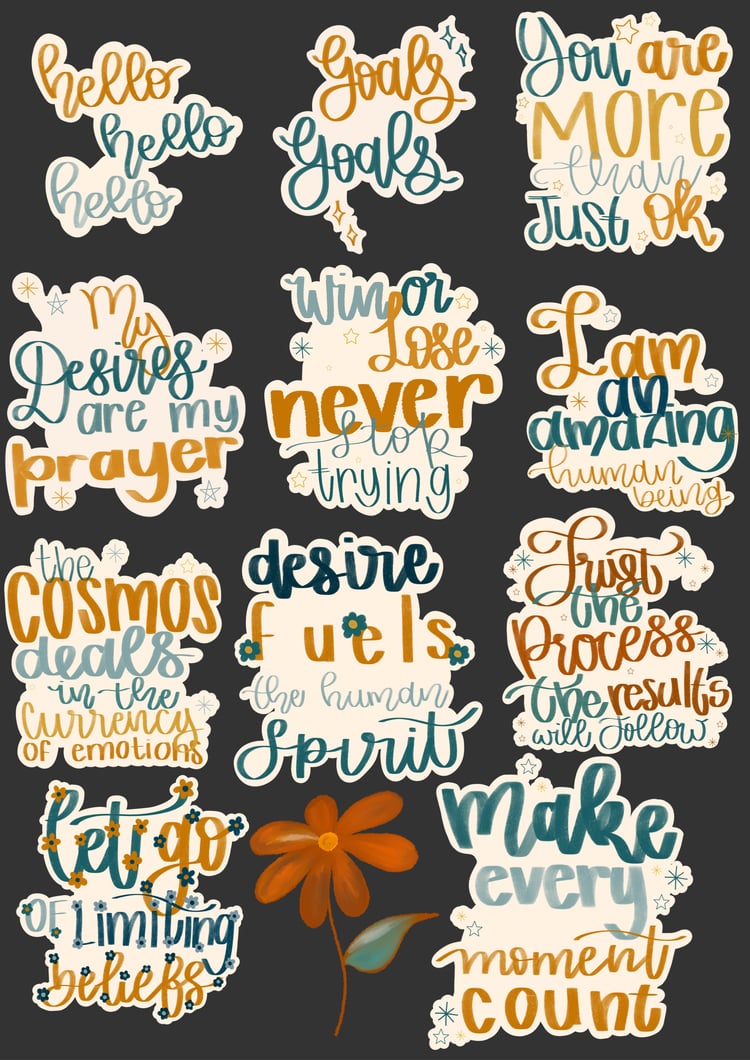 hello
hello
hello
Goals
Goals
You are
MORE
than
Just ok
My
Desires
are my
prayer
Win or
Lose
never
stop
trying
I am
an
amazing
human
being
the
COSMOS
deals
in the
Currency
OF emotions
desire
fuels
the human
Spirit
Trust
the
Process
the results
will follow
let go
OF Limiting
beliefs
make
every
moment
count